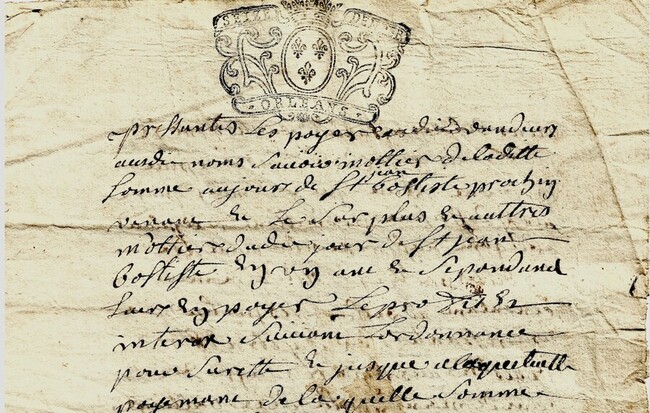 SEIZE DEN
ORLEANS
presantes Les payer vendeurs
audit noms Savoir mottier de ladette
Somme aujour de St jean Batiste prochin
venant & Le Surplus & auttres
mottier dudit jour de St jean
Batiste En un ant & Sependend
Leurs En payer Le
interex Suivant Lordonnance
pour Surette & jusque
payemant de la quelle Somme